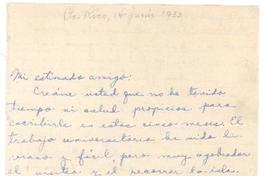 Pto. Rico, 14 junio 1933
Mi estimado amigo:
Créame usted que no he tenido
tiempo ni salud propicios para
escribirle en estos cinco meses. El
trabajo universitario ha sido li-
viano y fácil, pero muy agobiador
el visiteo y el recorrer la isla.